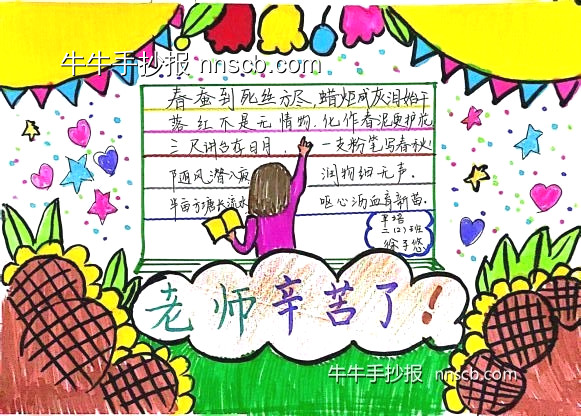 牛牛手抄报 nnscb.com
春蚕到死丝方尽 蜡炬成灰泪始干
落红不是无情物，化作春泥更护花
三尺讲台存日月，一支粉笔写春秋
随风潜入夜 润物细无声.
半亩方塘长流水 呕心沥血育新苗.
二(2)班
老师辛苦了!
牛牛手抄报 nnscb.com